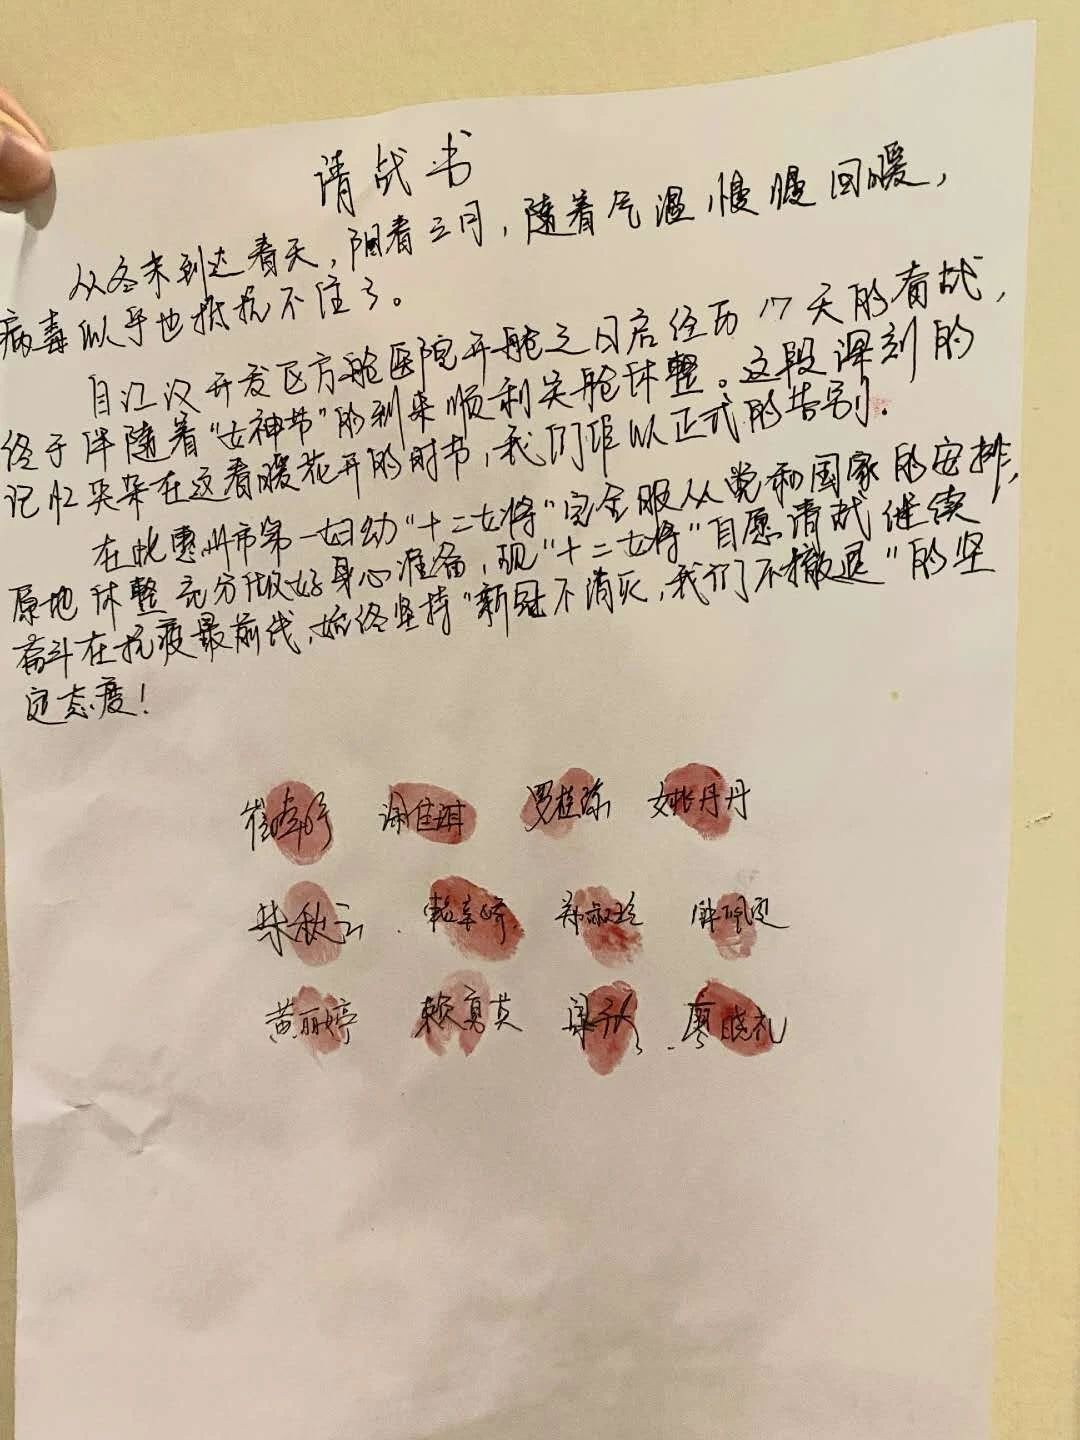 请战书
从冬末到达春天，阳春三月，随着气温慢慢回暖，
病毒似乎也抵抗不住了。
自江汉开发区方舱医院开舱之日后经历17天的奋战，
终于伴随着“女神节”的到来顺利关舱休整。这段深刻的
记忆夹杂在这春暖花开的时节，我们作以正式的告别.
在此惠州市第一妇幼“十二女将”完全服从党和国家的安排，
原地休整充分做好身心准备，现“十二女将”自愿请战继续
奋斗在抗疫最前线，始终坚持“新冠不消灭，我们不撤退”的坚
定态度！
谢佳琪 罗桂琼 姚丹丹
郑淑玲
黄丽婷 廖晓礼